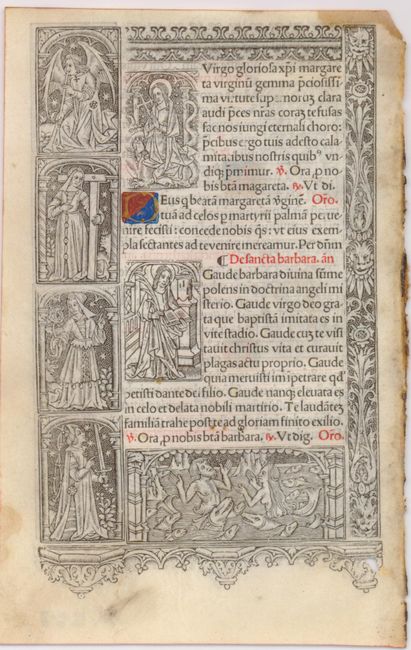 Virgo gloriosa xp̄i margare
ta virginū gemma p̄ciosissi
ma virtute supernorum clara
audi p̄ces nr̄as coraz te fusas
fac nos iungi eternali choro:
p̄cibus ergo tuis adesto cala
mitatibus nostris quibꝰ vn-
diqꝫ p̄mimur. ℣. Ora p̄ no
bis btā magareta. ℟. Vt di.
Deus q̄ beatā margaretā v̄ginē Oro.
tuā ad celos p̄ martyrii palmā peruē
nire fecisti: concede nobis q̄s: vt eius exem
pla sectantes ad te venire mereamur. Per dn̄m
¶ De sancta barbara. an̄
Gaude barbara diuina sūme
polens in doctrina angeli mi
sterio. Gaude virgo deo gra
ta que baptistā imitata es in
vite stadio. Gaude cuꝫ te visi
tauit christus vita et curauit
plagas actu proprio. Gaude
quia meruisti impetrare qd̄
petisti dante dei filio. Gaude nanqꝫ eleuata es
in celo et delata nobili martirio. Te laudātes
familiā trahe post te ad gloriam finito exilio.
℣. Ora p̄ nobis btā barbara. ℟. Vt dig. Oro.